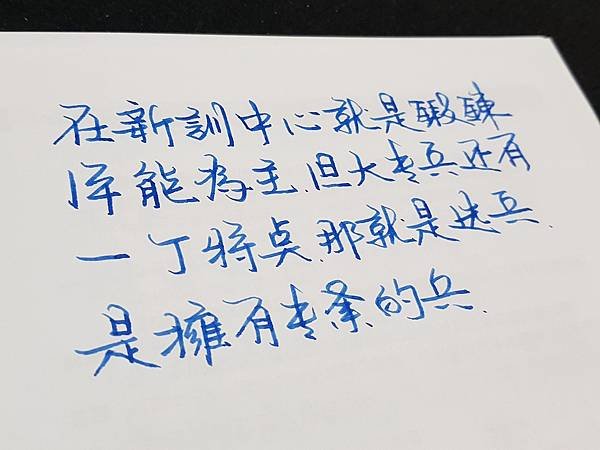 在新訓中心就是鍛鍊
体能為主.但大专兵还有
一丁特点.那就是选兵.
是擁有专業的兵.